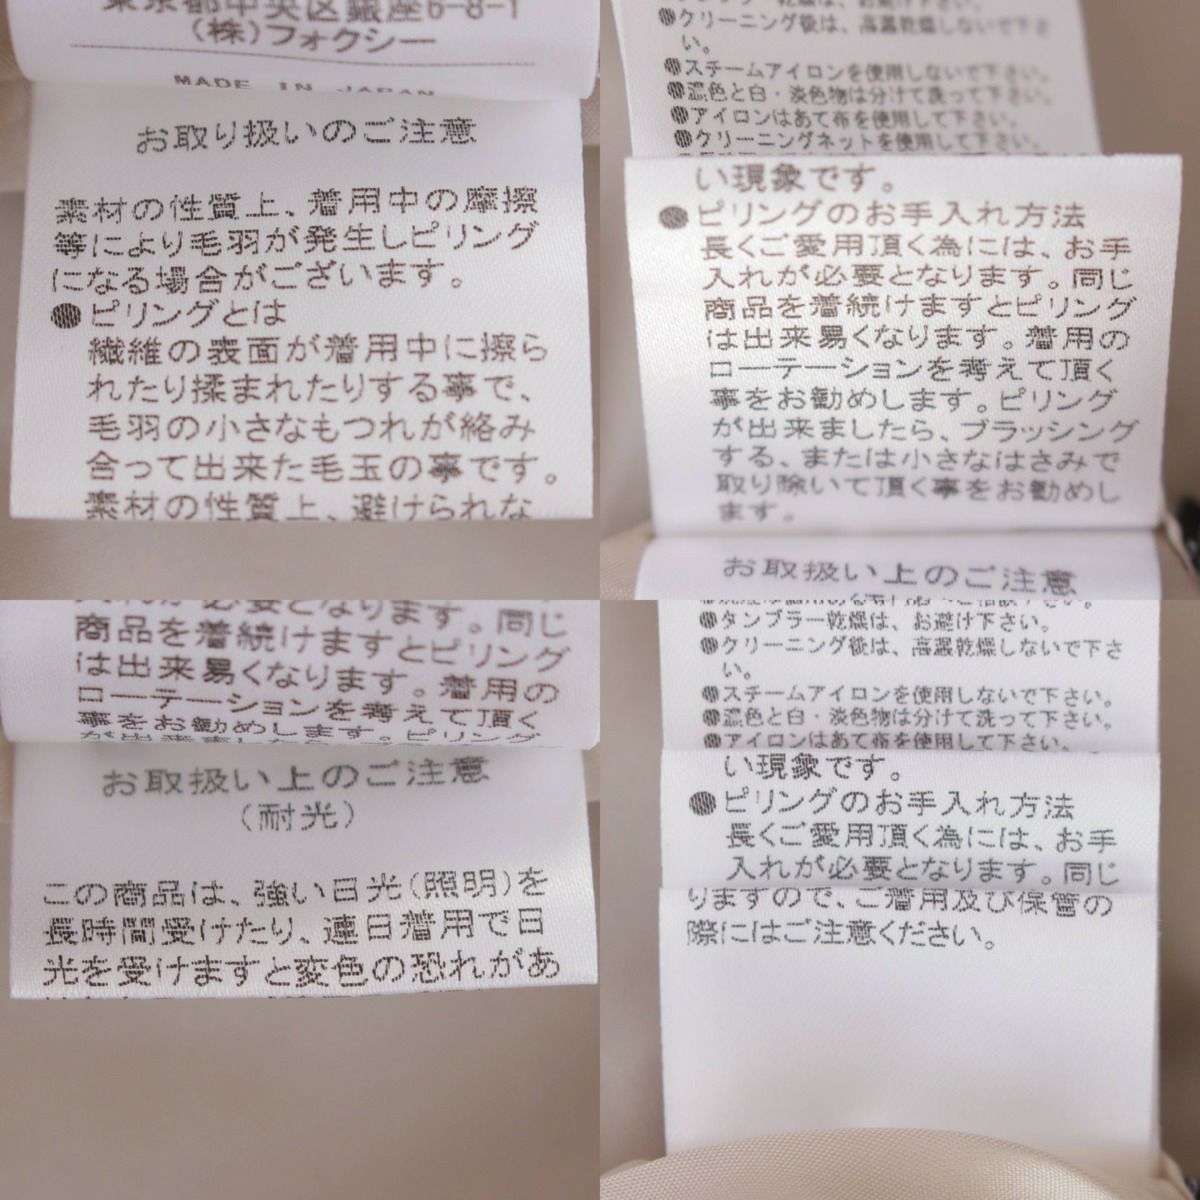 東京都中央区銀座6-8-1
(株)フォクシー
MADE IN JAPAN
お取り扱いのご注意
素材の性質上、着用中の摩擦
等により毛羽が発生しピリング
になる場合がございます。
●ピリングとは
繊維の表面が着用中に擦ら
れたり揉まれたりする事で、
毛羽の小さなもつれが絡み
合って出来た毛玉の事です。
素材の性質上、避けられな
●クリーニング後は、高温乾燥しないで下さ
い。
●スチームアイロンを使用しないで下さい。
●濃色と白・淡色物は分けて洗って下さい。
●アイロンはあて布を使用して下さい。
●クリーニングネットを使用して下さい。
い現象です。
●ピリングのお手入れ方法
長くご愛用頂く為には、お手
入れが必要となります。同じ
商品を着続けますとピリング
は出来易くなります。着用の
ローテーションを考えて頂く
事をお勧めします。ピリング
が出来ましたら、ブラッシング
する、または小さなはさみで
取り除いて頂く事をお勧めし
ます。
お取扱い上のご注意
必要となります。同じ
商品を着続けますとピリング
は出来易くなります。着用の
ローテーションを考えて頂く
事をお勧めします。ピリング
お取扱い上のご注意
(耐光)
この商品は、強い日光(照明)を
長時間受けたり、連日着用で日
光を受けますと変色の恐れがあ
●タンブラー乾燥は、お避け下さい。
●クリーニング後は、高温乾燥しないで下さ
い。
●スチームアイロンを使用しないで下さい。
●濃色と白・淡色物は分けて洗って下さい。
●アイロンはあて布を使用して下さい。
い現象です。
●ピリングのお手入れ方法
長くご愛用頂く為には、お手
入れが必要となります。同じ
りますので、ご着用及び保管の
際にはご注意ください。